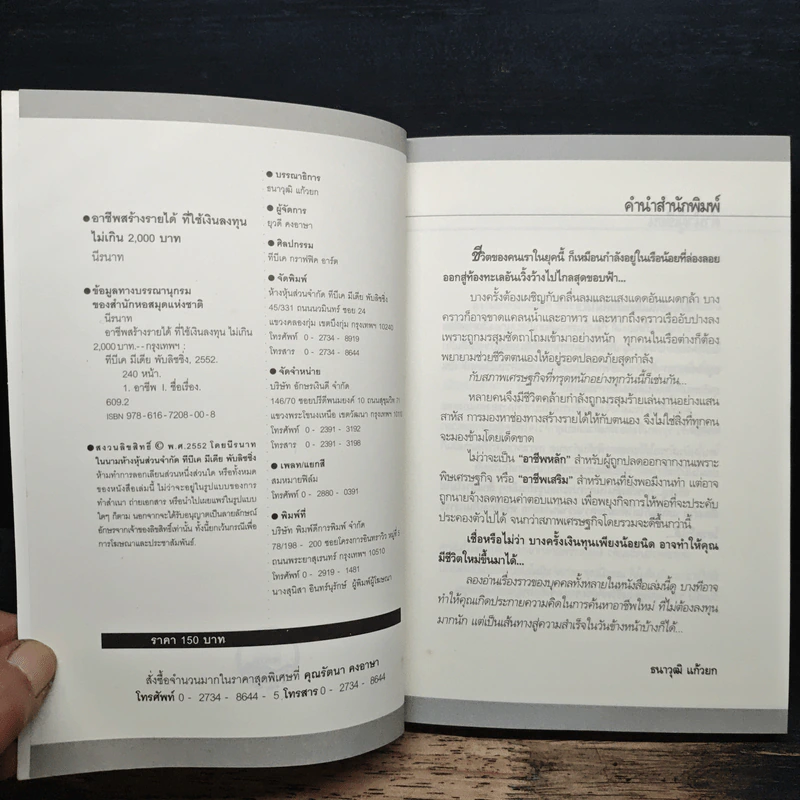 ● อาชีพสร้างรายได้ ที่ใช้เงินลงทุน
ไม่เกิน 2,000 บาท
นีรนาท
● ข้อมูลทางบรรณานุกรม
ของสำนักหอสมุดแห่งชาติ
นีรนาท
อาชีพสร้างรายได้ ที่ใช้เงินลงทุน ไม่เกิน
2,000 บาท.-- กรุงเทพฯ :
ทีบีเค มีเดีย พับลิชชิ่ง, 2552.
240 หน้า.
1. อาชีพ I. ชื่อเรื่อง.
609.2
ISBN 978-616-7208-00-8
● สงวนลิขสิทธิ์ © พ.ศ.2552 โดยนีรนาท
ในนามห้างหุ้นส่วนจำกัด ทีบีเค มีเดีย พับลิชชิ่ง
ห้ามทำการลอกเลียนส่วนหนึ่งส่วนใด หรือทั้งหมด
ของหนังสือเล่มนี้ ไม่ว่าจะอยู่ในรูปแบบของการ
ทำสำเนา ถ่ายเอกสาร หรือนำไปเผยแพร่ในรูปแบบ
ใดๆ ก็ตาม นอกจากจะได้รับอนุญาตเป็นลายลักษณ์
อักษรจากเจ้าของลิขสิทธิ์เท่านั้น ทั้งนี้ยกเว้นกรณีเพื่อ
การโฆษณาและประชาสัมพันธ์.
● บรรณาธิการ
ธนาวุฒิ แก้วยก
● ผู้จัดการ
ยุวดี คงอาษา
● ศิลปกรรม
ทีบีเค กราฟฟิค อาร์ต
● จัดพิมพ์
ห้างหุ้นส่วนจำกัด ทีบีเค มีเดีย พับลิชชิ่ง
45/331 ถนนนวมินทร์ ซอย 24
แขวงคลองกุ่ม เขตบึงกุ่ม กรุงเทพฯ 10240
โทรศัพท์ 0 - 2734 - 8919
โทรสาร 0 - 2734 - 8644
● จัดจำหน่าย
บริษัท อักษรเงินดี จำกัด
146/70 ซอยปรีดีพนมยงค์ 10 ถนนสุขุมวิท 71
แขวงพระโขนงเหนือ เขตวัฒนา กรุงเทพฯ 10310
โทรศัพท์ 0 - 2391 - 3192
โทรสาร 0 - 2391 - 3196
● เพลท/แยกสี
สมหมายฟิล์ม
โทรศัพท์ 0 - 2880 - 0391
● พิมพ์ที่
บริษัท พิมพ์ดีการพิมพ์ จำกัด
78/198 - 200 ซอยโครงการอินทราวิว หมู่ที่ 5
ถนนพระยาสุเรนทร์ กรุงเทพฯ 10510
โทรศัพท์ 0 - 2919 - 1481
นางสุนิสา อินทร์นุรักษ์ ผู้พิมพ์ผู้โฆษณา
ราคา 150 บาท
สั่งซื้อจำนวนมากในราคาสุดพิเศษที่ คุณรัตนา คงอาษา
โทรศัพท์ 0 - 2734 - 8644 - 5 โทรสาร 0 - 2734 - 8644
คำนำสำนักพิมพ์
ชีวิตของคนเราในยุคนี้ ก็เหมือนกำลังอยู่ในเรือน้อยที่ล่องลอย
ออกสู่ท้องทะเลอันเวิ้งว้างไปไกลสุดขอบฟ้า...
บางครั้งต้องเผชิญกับคลื่นลมและแสงแดดอันแผดกล้า บาง
คราวก็อาจขาดแคลนน้ำและอาหาร และหากถึงคราวเรืออับปางลง
เพราะถูกมรสุมซัดถาโถมเข้ามาอย่างหนัก ทุกคนในเรือต่างก็ต้อง
พยายามช่วยชีวิตตนเองให้อยู่รอดปลอดภัยสุดกำลัง
กับสภาพเศรษฐกิจที่ทรุดหนักอย่างทุกวันนี้ก็เช่นกัน...
หลายคนจึงมีชีวิตคล้ายกำลังถูกมรสุมร้ายเล่นงานอย่างแสน
สาหัส การมองหาช่องทางสร้างรายได้ให้กับตนเอง จึงไม่ใช่สิ่งที่ทุกคน
จะมองข้ามโดยเด็ดขาด
ไม่ว่าจะเป็น "อาชีพหลัก" สำหรับผู้ถูกปลดออกจากงานเพราะ
พิษเศรษฐกิจ หรือ "อาชีพเสริม" สำหรับคนที่ยังพอมีงานทำ แต่อาจ
ถูกนายจ้างลดทอนค่าตอบแทนลง เพื่อพยุงกิจการให้พอที่จะประคับ
ประคองตัวไปได้ จนกว่าสภาพเศรษฐกิจโดยรวมจะดีขึ้นกว่านี้
เชื่อหรือไม่ว่า บางครั้งเงินทุนเพียงน้อยนิด อาจทำให้คุณ
มีชีวิตใหม่ขึ้นมาได้...
ลองอ่านเรื่องราวของบุคคลทั้งหลายในหนังสือเล่มนี้ดู บางทีอาจ
ทำให้คุณเกิดประกายความคิดในการค้นหาอาชีพใหม่ ที่ไม่ต้องลงทุน
มากนัก แต่เป็นเส้นทางสู่ความสำเร็จในวันข้างหน้าบ้างก็ได้...
ธนาวุฒิ แก้วยก